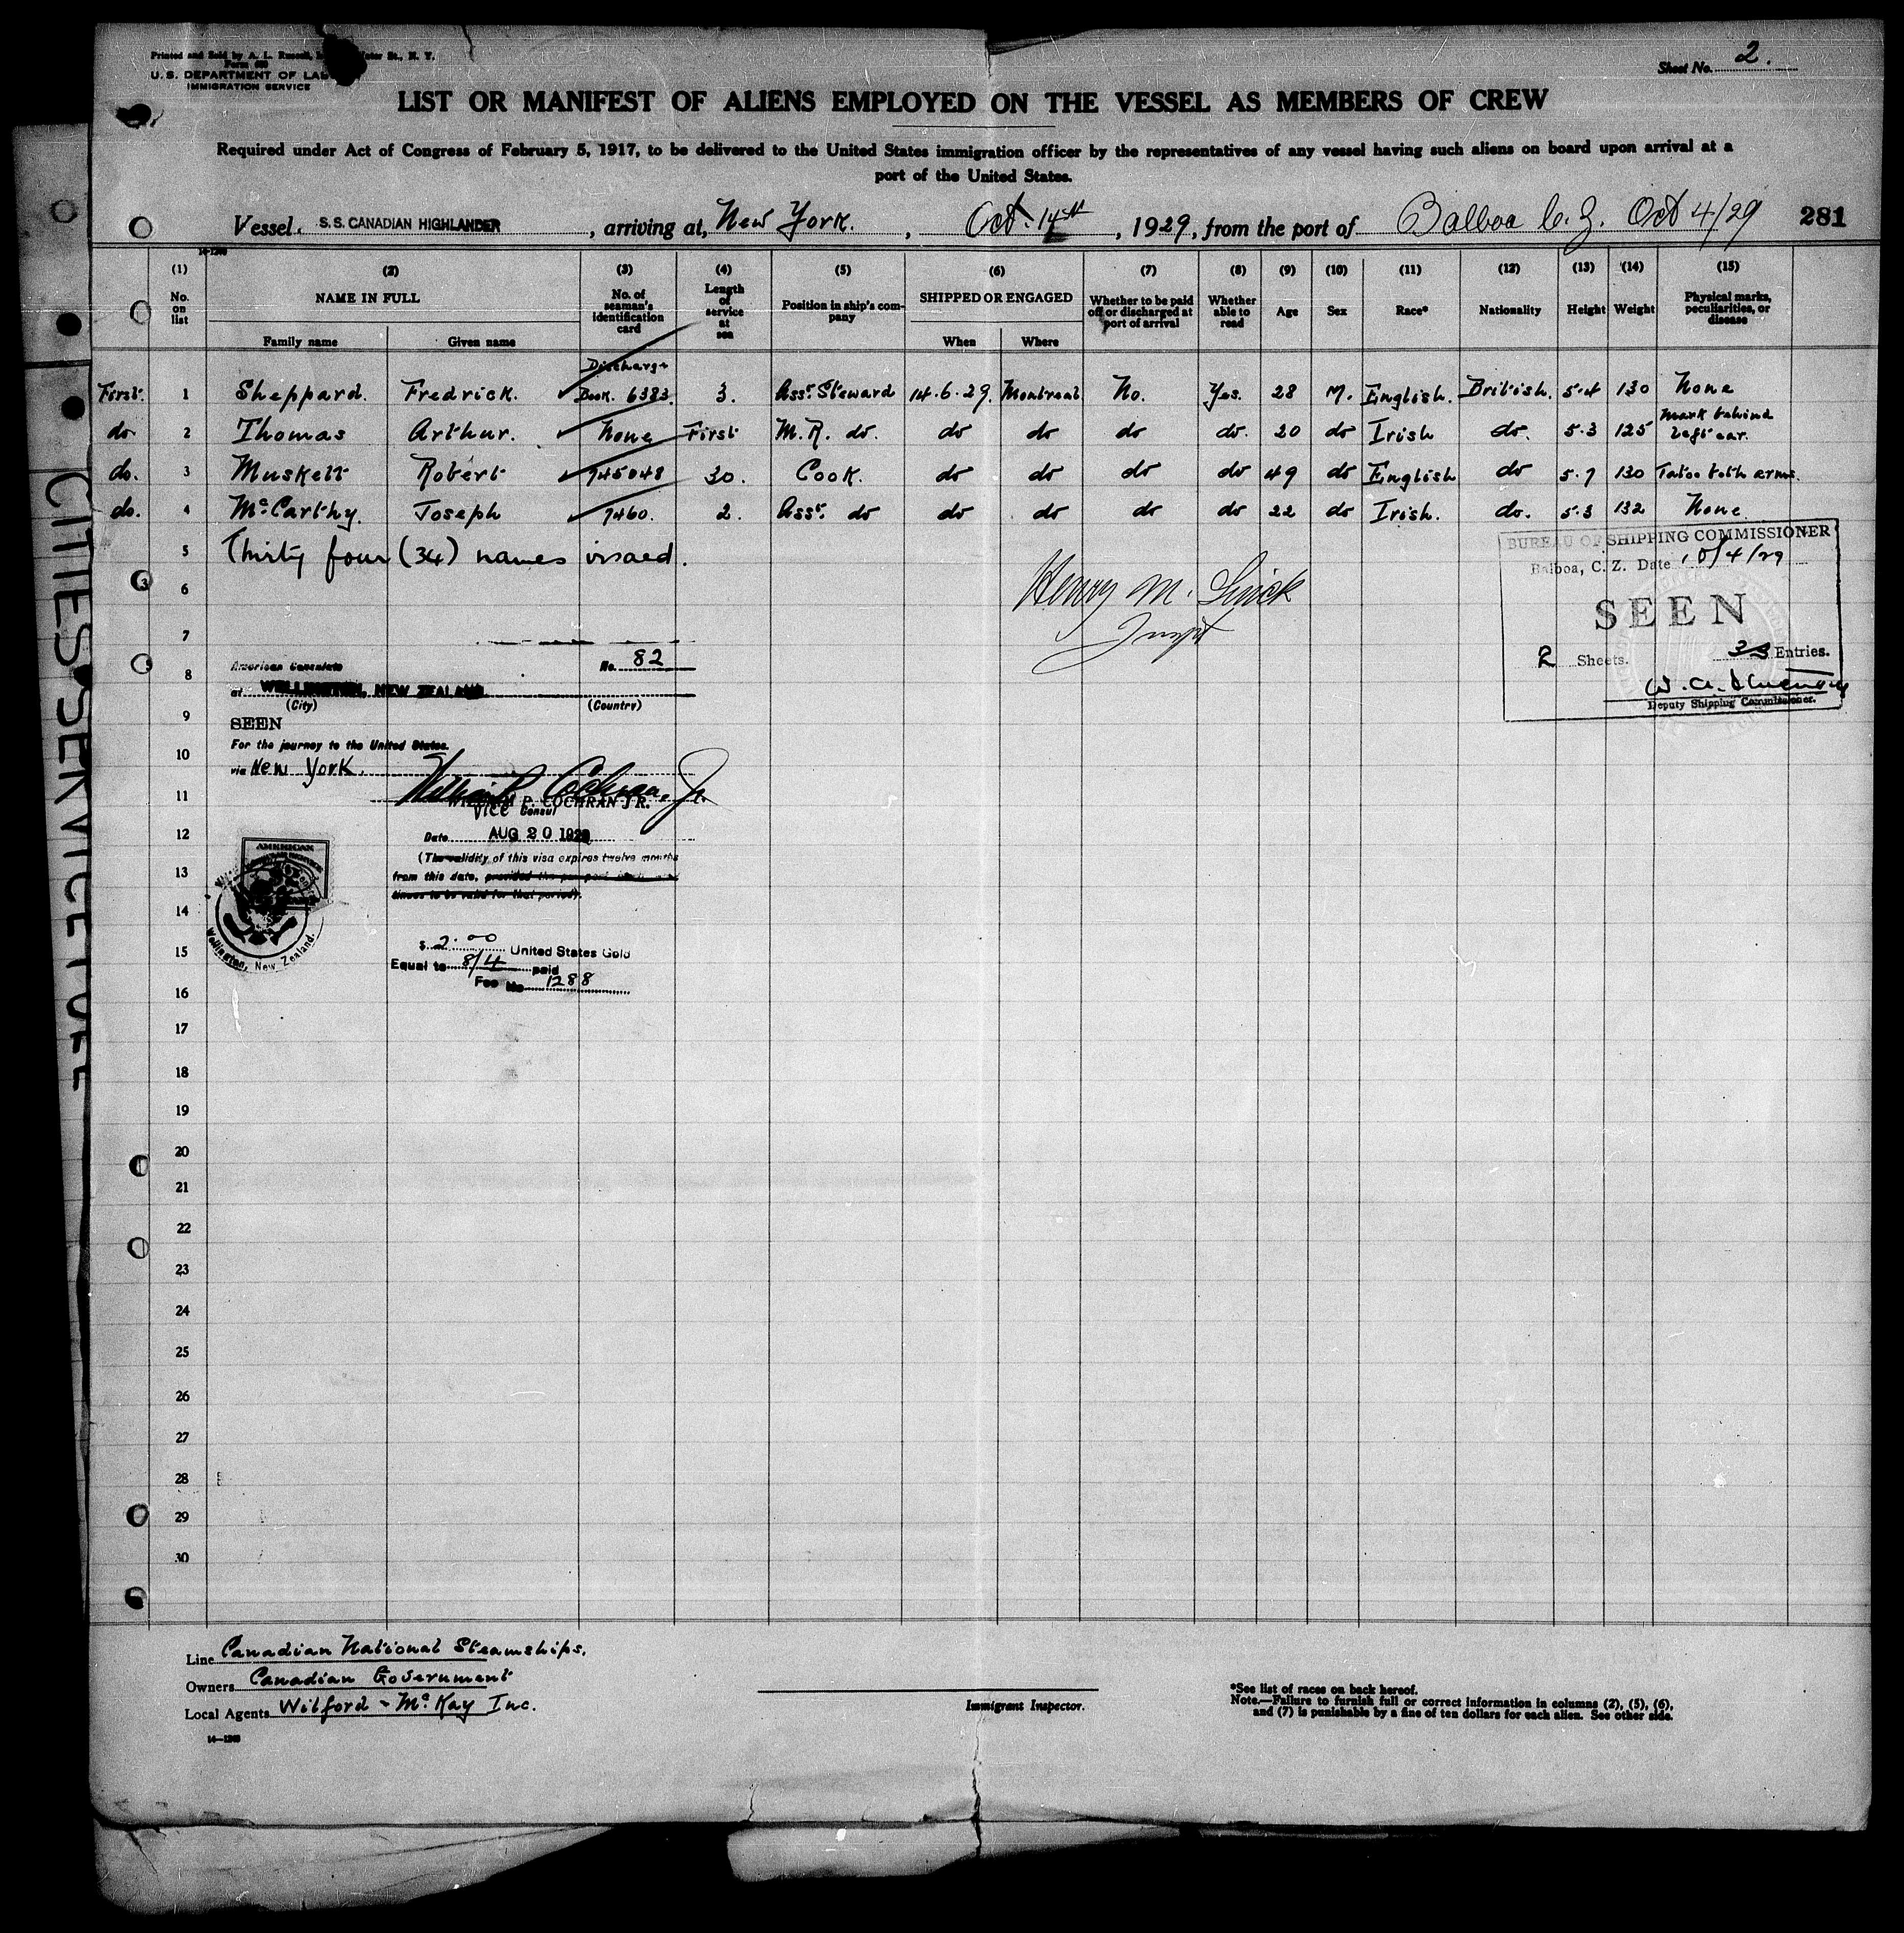 Printed and Sold by A. L. Russell, Water St., N. Y.
U. S. DEPARTMENT OF
IMMIGRATION SERVICE
Sheet No. 2.
LIST OR MANIFEST OF ALIENS EMPLOYED ON THE VESSEL AS MEMBERS OF CREW
Required under Act of Congress of February 5, 1917, to be delivered to the United States immigration officer by the representatives of any vessel having such aliens on board upon arrival at a
port of the United States.
Vessel, S.S. CANADIAN HIGHLANDER, arriving at, New York., Oct. 14th, 1929, from the port of Balboa C.Z. Oct 4/29 281
(1) (2) (3) (4) (5) (6) (7) (8) (9) (10) (11) (12) (13) (14) (15)
No. on list NAME IN FULL No. of seaman's identification card Length of service at sea Position in ship's company SHIPPED OR ENGAGED Whether to be paid off or discharged at port of arrival Whether able to read Age Sex Race* Nationality Height Weight Physical marks, peculiarities, or disease
Family name Given name When Where
First. 1 Sheppard. Fredrick. Discharge Book. 6383. 3. Asst. Steward 14.6.29. Montreal No. Yes. 28 M. English. British. 5.4 130 None
do. 2 Thomas Arthur. None First M.R. do. do do do do. 20 do Irish do. 5.3 125 Mark behind left ear.
do. 3 Muskett Robert 745048 30. Cook. do do do do 49 do English do 5.7 130 Tatoo both arms.
do. 4 McCarthy. Joseph 7460. 2. Asst. do do do do do 22 do Irish. do. 5.3 132 None.
5 Thirty four (34) names visaed.
6
7
8
9
10
11
12
13
14
15
16
17
18
19
20
21
22
23
24
25
26
27
28
29
30
Henry M.
Inspt
BUREAU OF SHIPPING COMMISSIONER
Balboa, C. Z. Date 10/4/29
SEEN
2 Sheets. 33 Entries.
Deputy Shipping Commissioner.
American Consulate No. 82
at WELLINGTON, NEW ZEALAND
(City) (Country)
SEEN
For the journey to the United States.
via New York.
William P. Cochran, Jr.
WILLIAM P. COCHRAN JR.
Vice Consul
Date AUG 20 1929
(The validity of this visa expires twelve months
from this date, provided the passport
tinues to be valid for that period).
AMERICAN
Wellington, New Zealand.
$ 2.00 United States Gold
Equal to 8/4 paid
Fee No 1288
CITIES SERVICE
Line Canadian National Steamships.
Owners Canadian Government
Local Agents Wilford - McKay Inc.
14—1240
Immigrant Inspector.
*See list of races on back hereof.
Note.—Failure to furnish full or correct information in columns (2), (5), (6),
and (7) is punishable by a fine of ten dollars for each alien. See other side.